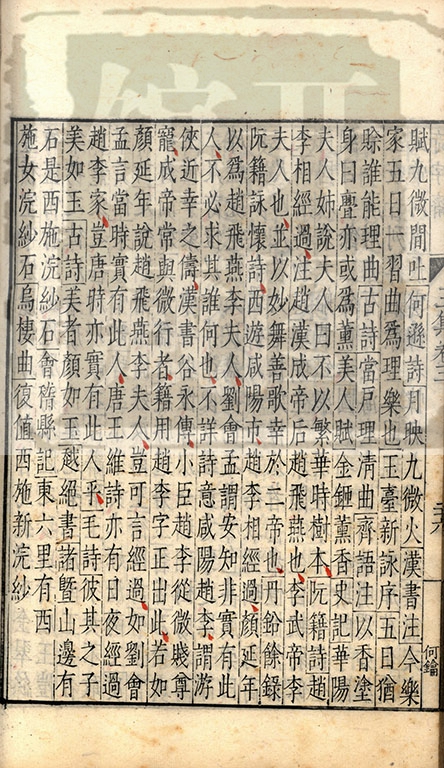 賦九微間吐何遜詩月映九微火漢書注今樂
家五日一習曲爲理樂也玉臺新詠序五日猶
賒誰能理曲古詩當戶理清曲齊語注以香塗
身曰亹亦或爲薰美人賦金鉔薰香史記華陽
夫人姊說夫人曰不以繁華時樹本阮籍詩趙
李相經過注趙漢成帝后趙飛燕也李武帝李
夫人也並以妙舞善歌幸於二帝也丹鉛餘錄
阮籍詠懷詩西遊咸陽市趙李相經過顏延年
以爲趙飛燕李夫人劉會孟謂安知非實有此
人不必求其誰何也不詳詩意咸陽趙李謂游
俠近幸之儔漢書谷永傳小臣趙李從微賤尊
寵成帝常與微行者籍用趙李字正出此若如
顏延年說趙飛燕李夫人豈可言經過如劉會
孟言當時實有此人唐王維詩亦有日夜經過
趙李家豈唐時亦實有此人乎毛詩彼其之子
美如玉古詩美者顏如玉越絕書諸暨山邊有
石是西施浣紗石會稽縣記東六里有西
施女浣紗石烏棲曲復值西施新浣紗
何鑰